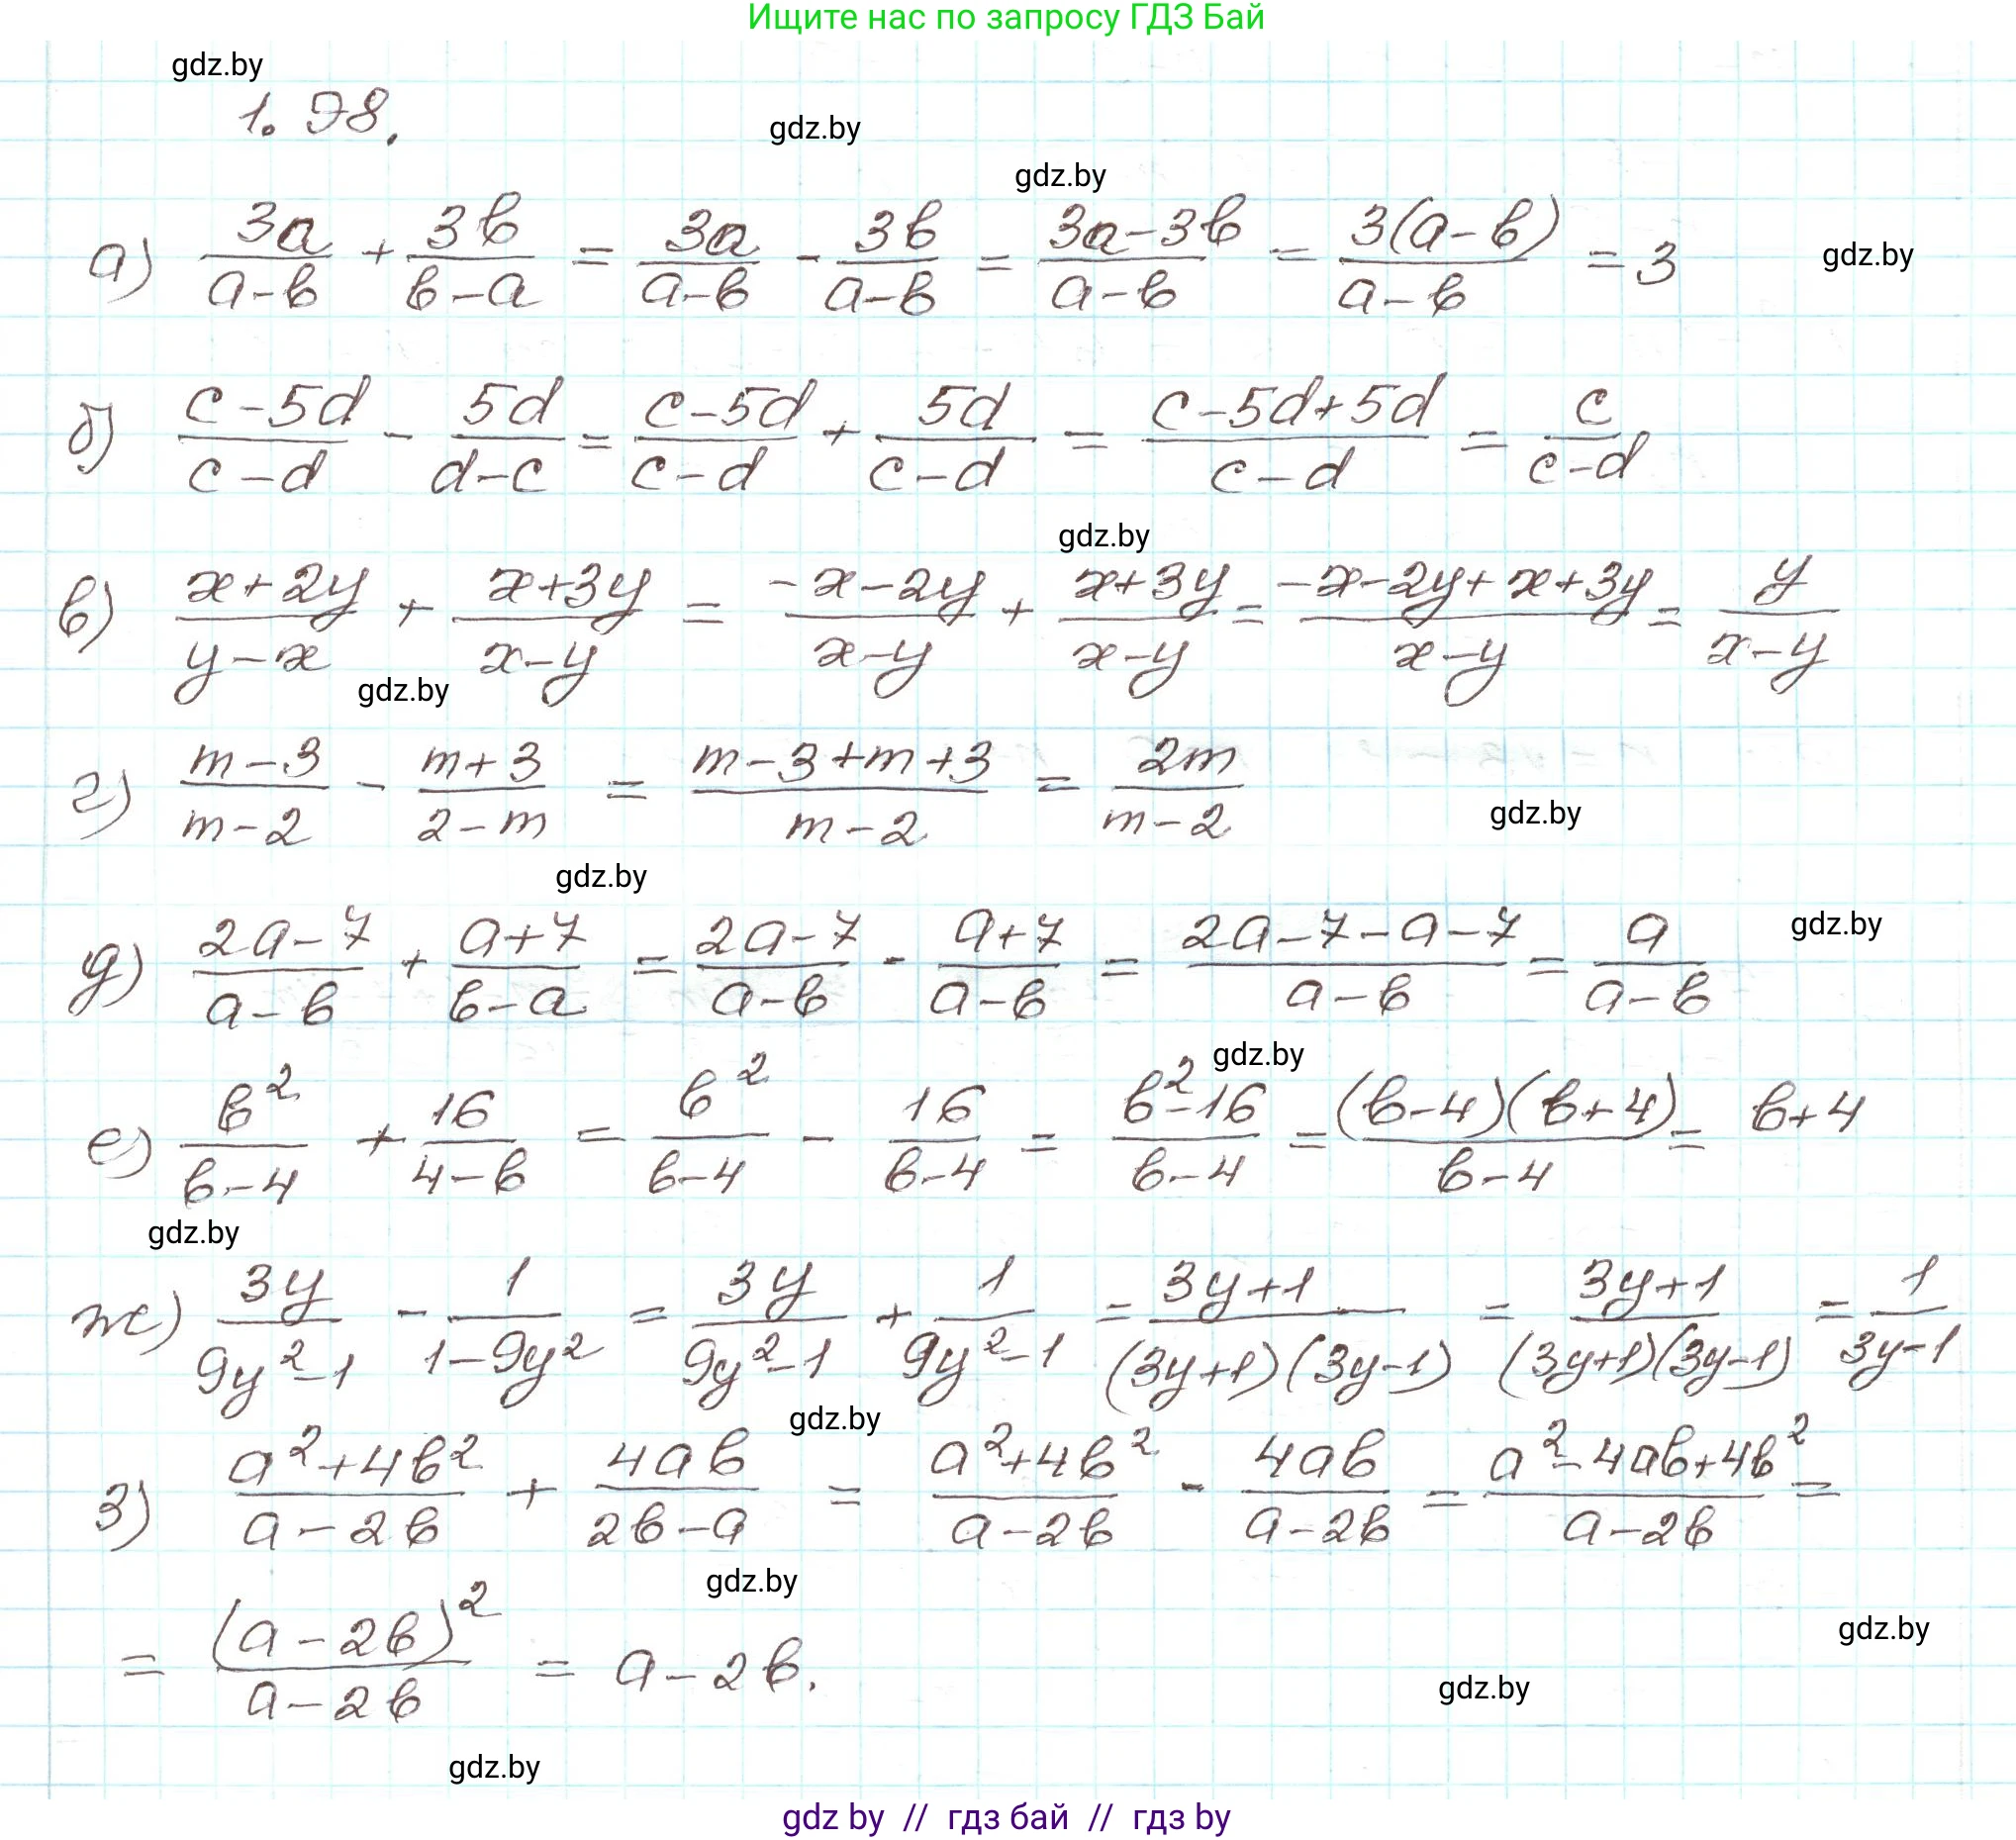 Ищите нас по запросу ГДЗ Бай
gdz.by
1.98.
gdz.by
gdz.by
а) 3a/(a-b) + 3b/(b-a) = 3a/(a-b) - 3b/(a-b) = (3a-3b)/(a-b) = 3(a-b)/(a-b) = 3
gdz.by
б) (c-5d)/(c-d) - 5d/(d-c) = (c-5d)/(c-d) + 5d/(c-d) = (c-5d+5d)/(c-d) = c/(c-d)
gdz.by
в) (x+2y)/(y-x) + (x+3y)/(x-y) = (-x-2y)/(x-y) + (x+3y)/(x-y) = (-x-2y+x+3y)/(x-y) = y/(x-y)
gdz.by
г) (m-3)/(m-2) - (m+3)/(2-m) = (m-3+m+3)/(m-2) = 2m/(m-2)
gdz.by
gdz.by
д) (2a-7)/(a-b) + (a+7)/(b-a) = (2a-7)/(a-b) - (a+7)/(a-b) = (2a-7-a-7)/(a-b) = a/(a-b)
gdz.by
gdz.by
е) b²/(b-4) + 16/(4-b) = b²/(b-4) - 16/(b-4) = (b²-16)/(b-4) = (b-4)(b+4)/(b-4) = b+4
gdz.by
ж) 3y/(9y²-1) - 1/(1-9y²) = 3y/(9y²-1) + 1/(9y²-1) = (3y+1)/((3y+1)(3y-1)) = (3y+1)/((3y+1)(3y-1)) = 1/(3y-1)
gdz.by
з) (a²+4b²)/(a-2b) + 4ab/(2b-a) = (a²+4b²)/(a-2b) - 4ab/(a-2b) = (a²-4ab+4b²)/(a-2b) =
gdz.by
= (a-2b)²/(a-2b) = a-2b.
gdz.by
gdz.by
gdz.by
gdz by // гдз бай // гдз by